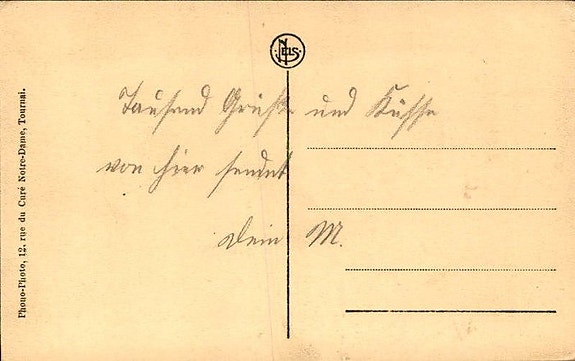 NELS
Tausend Grüße und Küsse
von hier sendet
Dein M.
Phono-Photo, 12, rue du Curé Notre-Dame, Tournai.